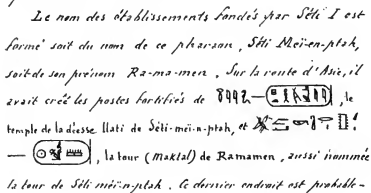 Le nom des établissements fondés par Séti I est
formé soit du nom de ce pharaon, Séti Meï-en-ptah,
soit de son prénom Ra-ma-men. Sur la route d'Asie, il
avait créé les postes fortifiés de , le
temple de la déesse Ilati de Séti-meï-n-ptah, et
—, la tour (Maktal) de Ramamen, aussi nommée
la tour de Séti meï-n-ptah. Ce dernier endroit est probable-